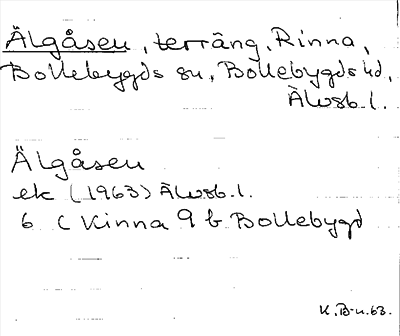 Älgåsen, terräng, Rinna,
Bollebygds sn, Bollebygds hd,
Älvsb. l.
Älgåsen
ek (1963) Älvsb. l.
6 C Kinna 9 b Bollebygd
K. B-n. 63.